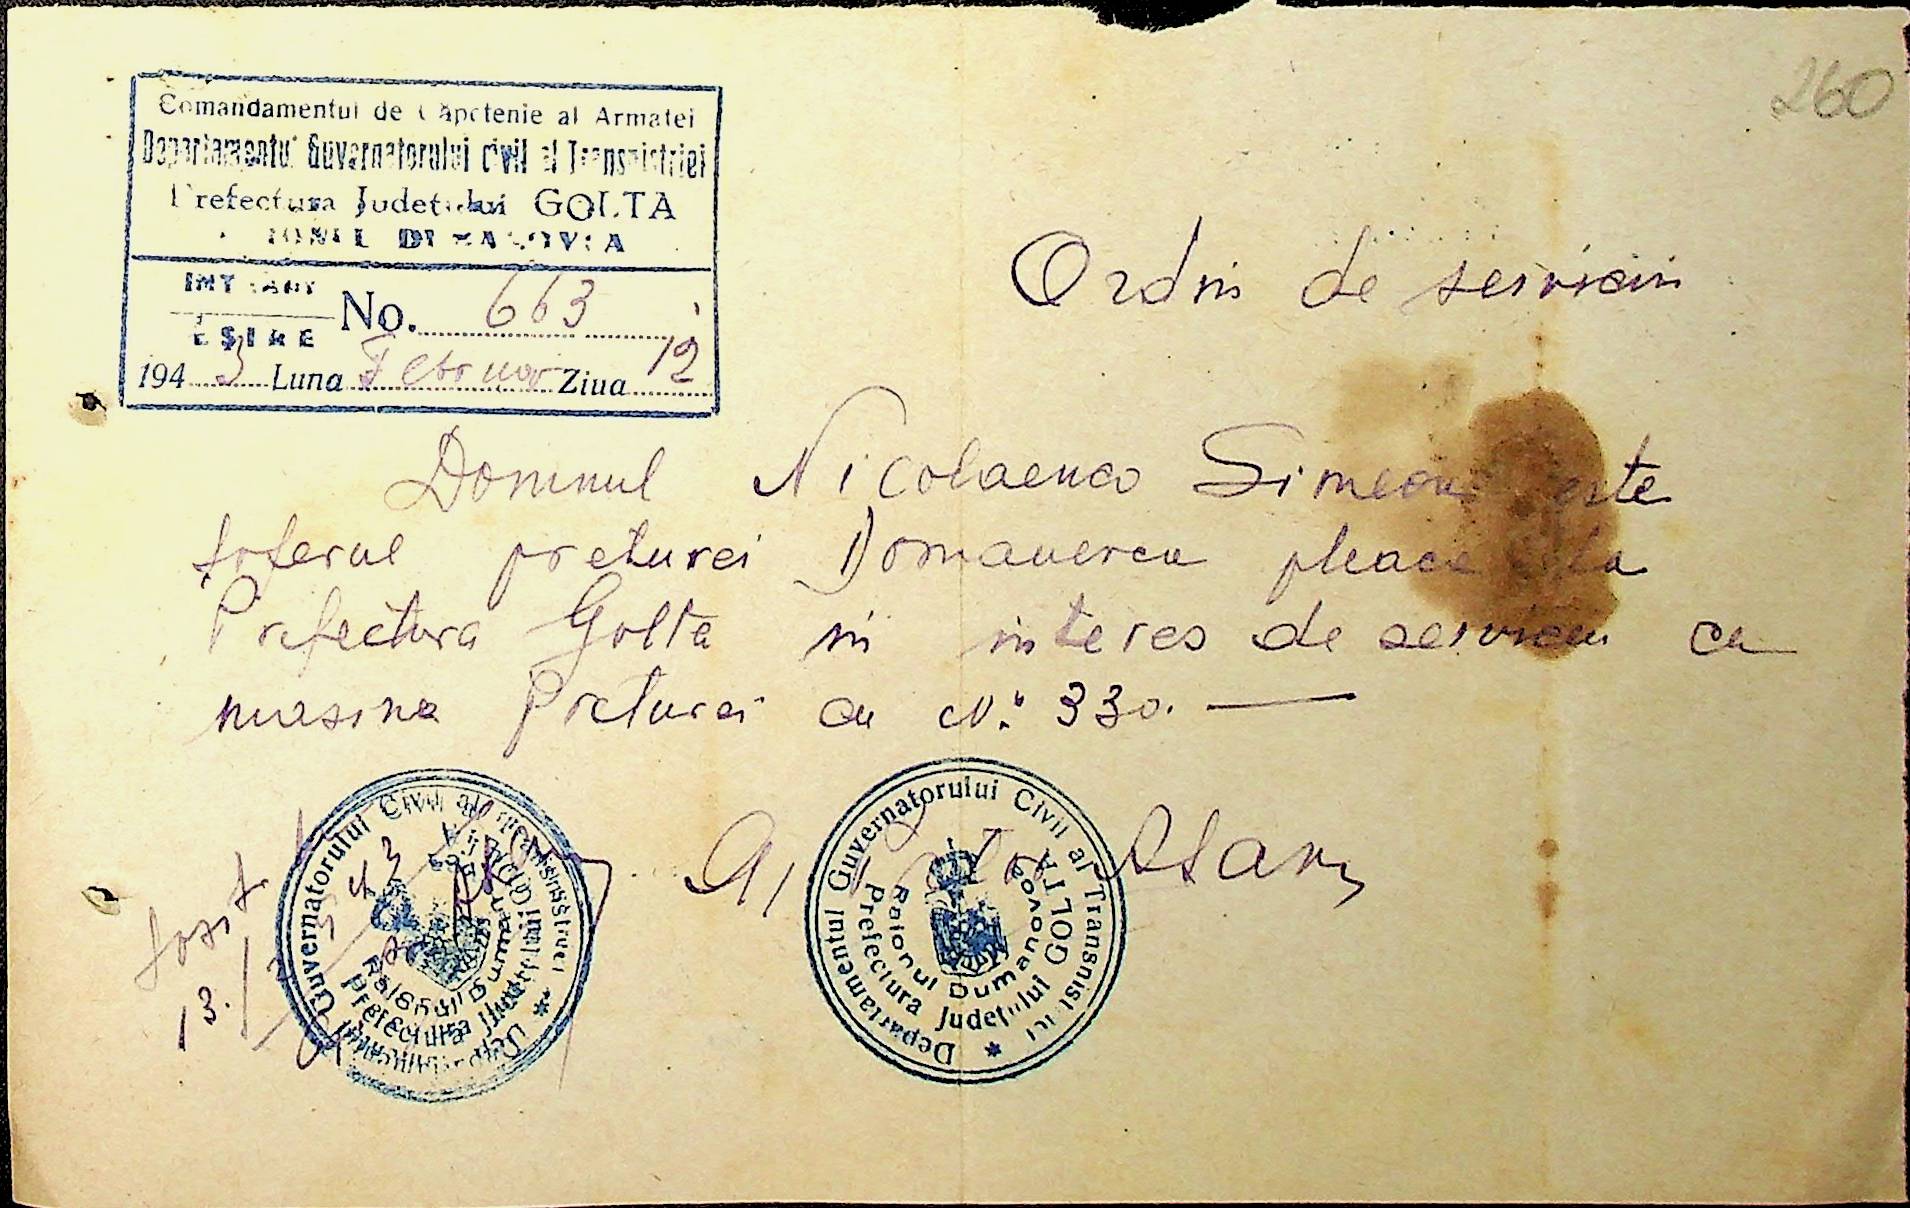 260
Comandamentul de Căpetenie al Armatei
Departamentul Guvernatorului civil al Transnistriei
Prefectura Județului GOLTA
INTRARE
EȘIRE
No. 663
1943 Luna Februar Ziua 12
Ordin de serviciu
Domnul Nicolaenco Simeon este
soferul preturei Domanevca pleaca la
Prefectura Golta in interes de serviciu cu
masina Preturei cu No. 330.
Departamentul Guvernatorului Civil al Transnistriei
Prefectura Județului GOLTA
Raionul Dumanovca
Guvernatorului Civil al Transnistriei
Prefectura
Raionul